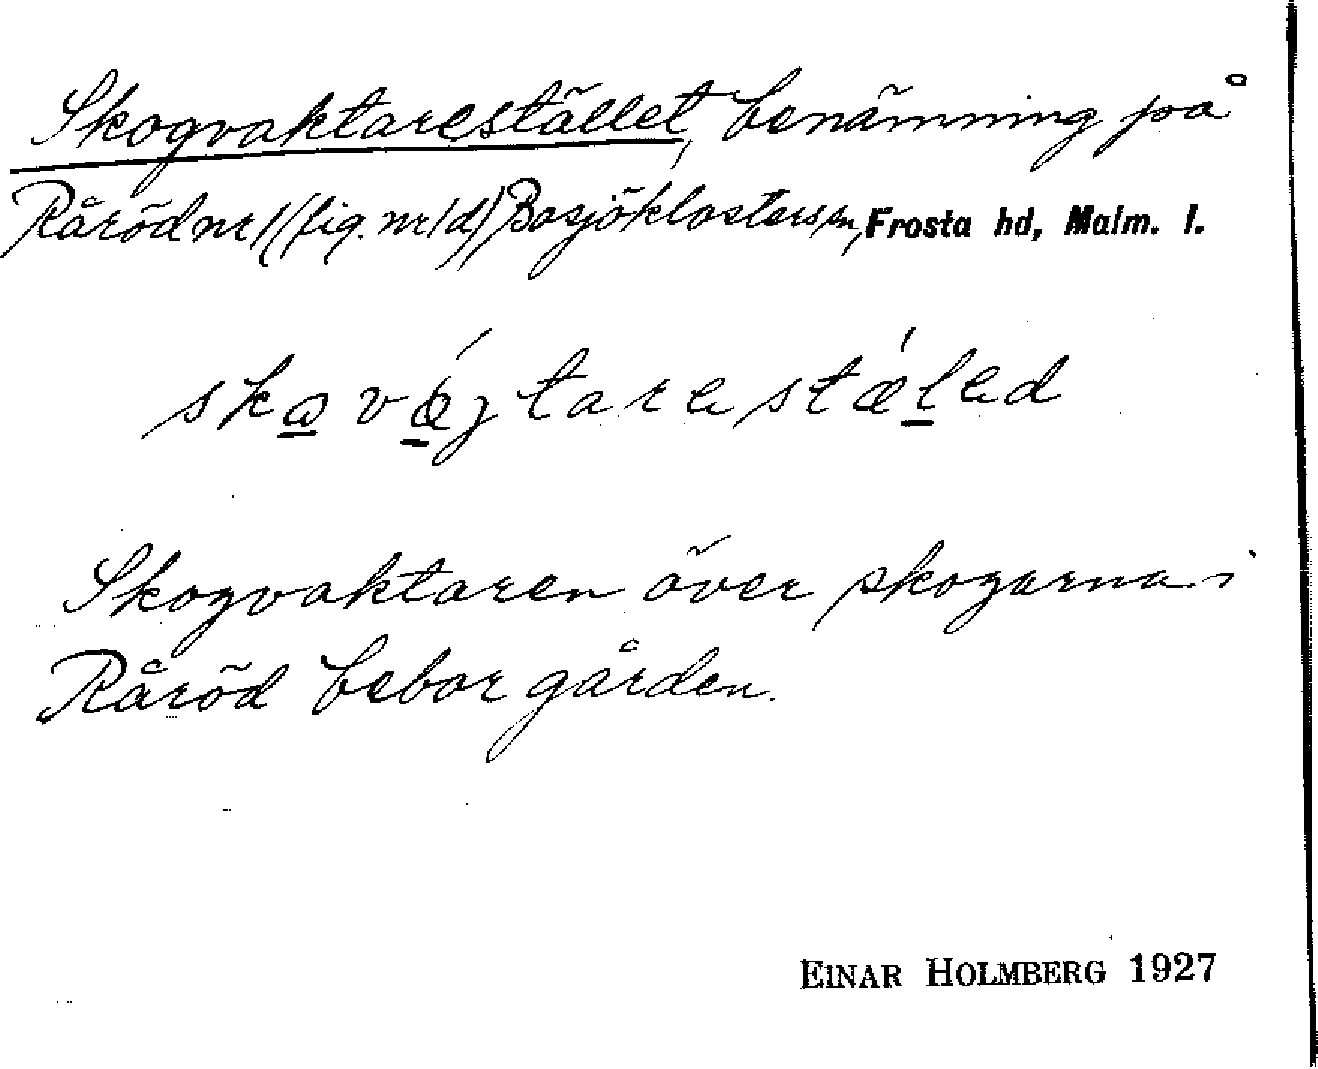 Skogvaktarestället, benämning på
Råröd nr 1 (fig. nr 1d) Bosjöklosters sn, Frosta hd, Malm. l.
skovæjtarestæled
Skogvaktaren över skogarna i
Råröd bebor gården.
EINAR HOLMBERG 1927